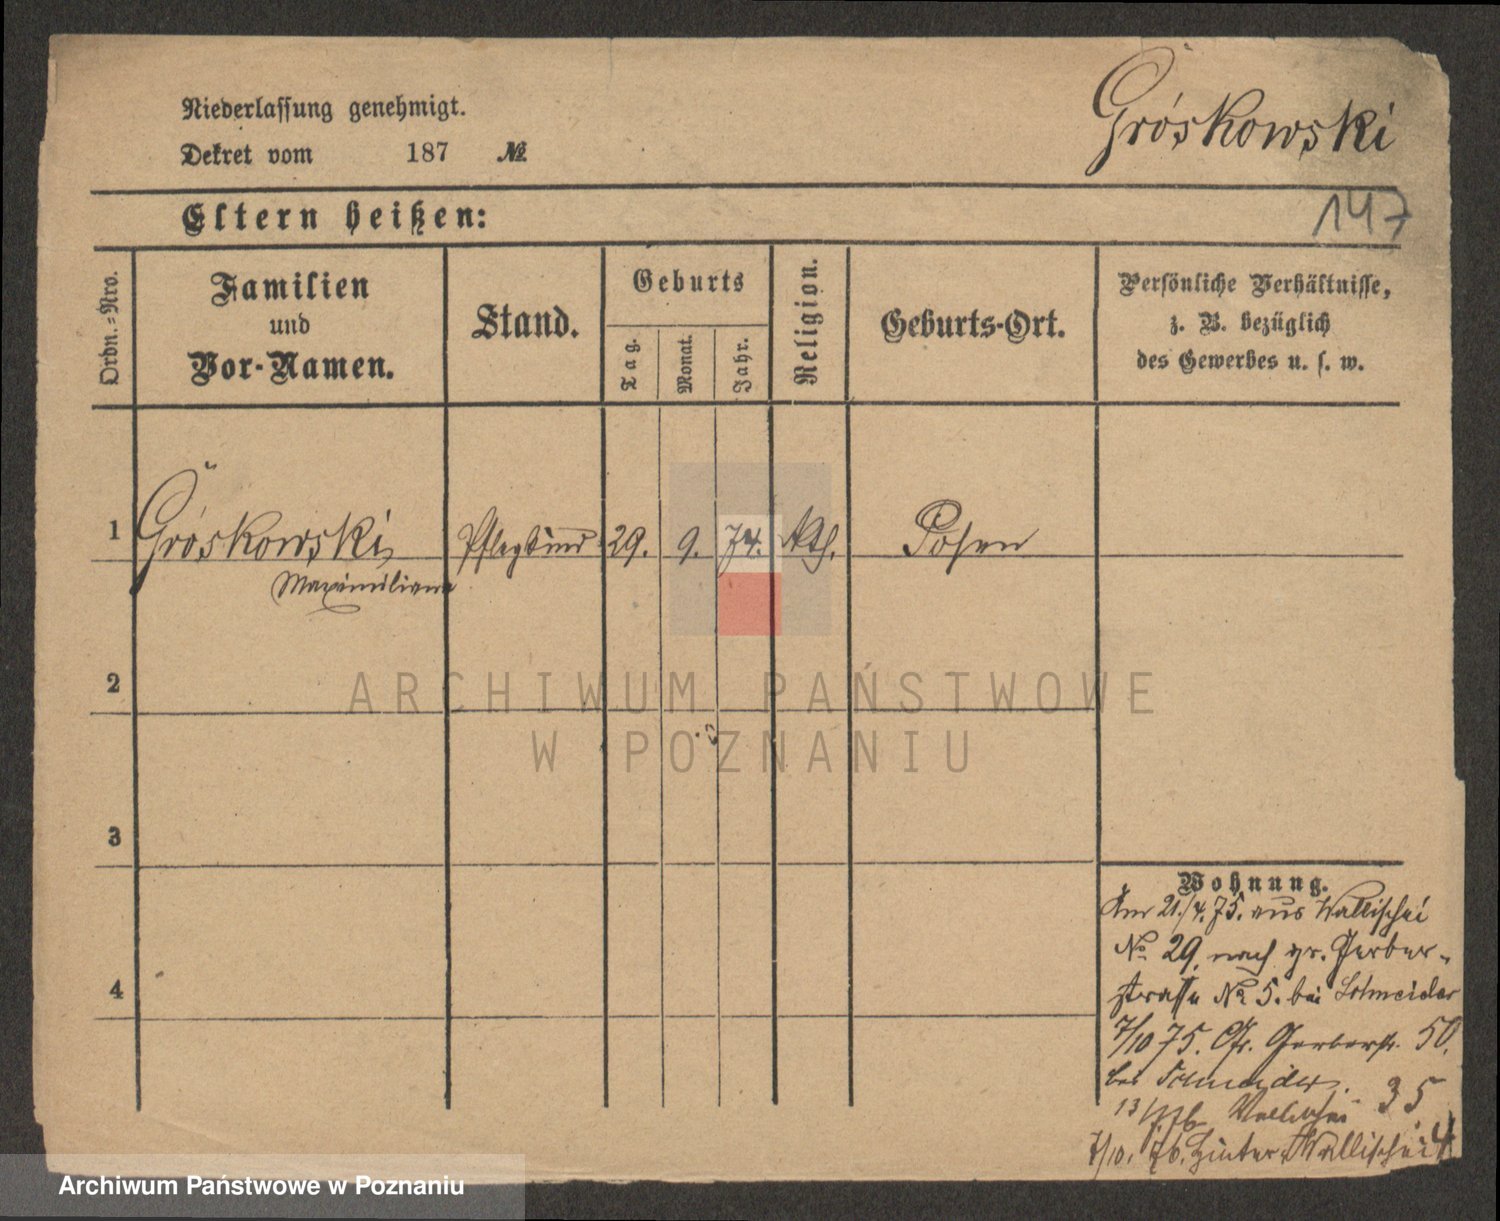 Gróskowski
Niederlassung genehmigt.
Dekret vom 187 №
Eltern heißen:
147
Ordn.-Nro.
Familien
und
Vor-Namen.
Stand.
Geburts
Tag.
Monat.
Jahr.
Religion.
Geburts-Ort.
Persönliche Verhältnisse,
z. B. bezüglich
des Gewerbes u. s. w.
1 Gróskowski, Pflegkind 29. 9. 74. kth. Posen
Maximiliana
2
3
4
Wohnung.
Am 21./4. 75. aus Wallischei
№ 29. nach gr. Gerber-
strasse № 5. bei Schneider
7/10 75. Gr. Gerberstr. 50.
bei Schneider.
Wallischei 35
7/10. 76. Hinter Wallischei 4
ARCHIWUM PAŃSTWOWE
W POZNANIU
Archiwum Państwowe w Poznaniu